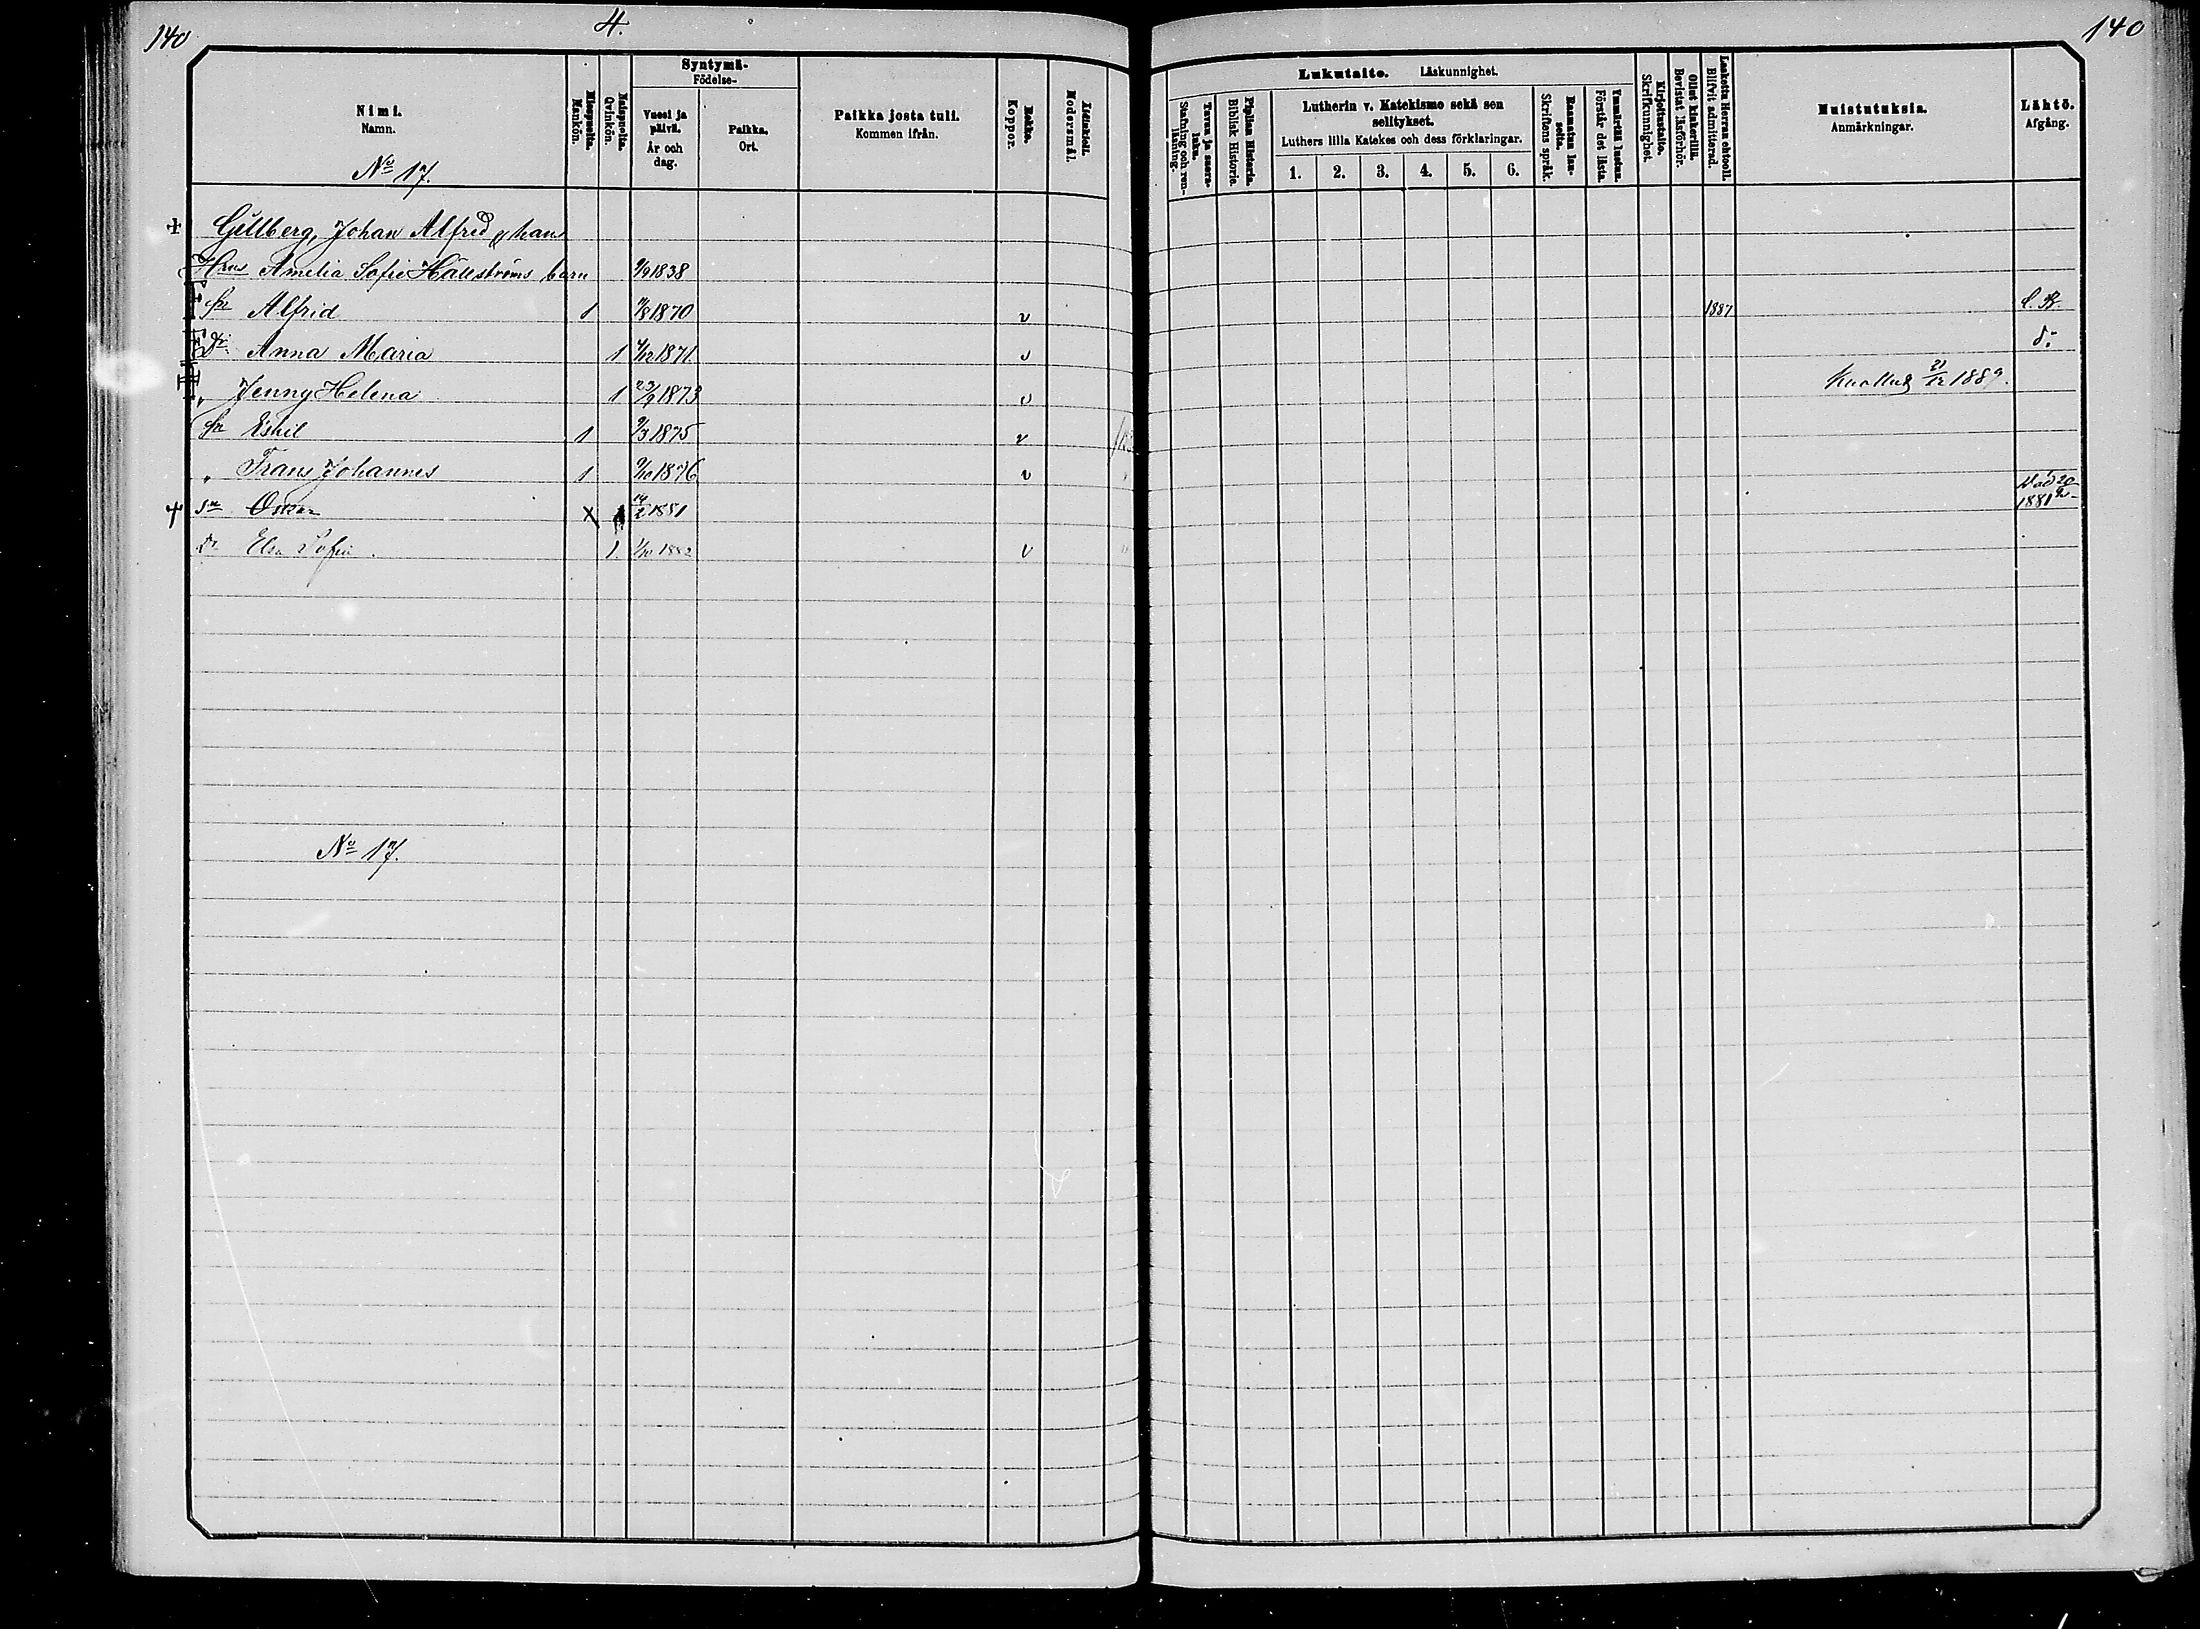 140
4.
140
Nimi.
Namn.
No 17.
Miespuolta.
Mankön.
Naispuolta.
Qvinkön.
Syntymä-
Födelse-
Vuosi ja
päivä.
År och
dag.
Paikka.
Ort.
Paikka josta tuli.
Kommen ifrån.
Rokko.
Koppor.
Äidinkieli.
Modersmål.
Lukutaito. Läskunnighet.
Tavaa ja suora-
luku.
Stafning och ren-
läsning.
Piplian Historia.
Biblisk Historie.
Lutherin v. Katekismo sekä sen
selitykset.
Luthers lilla Katekes och dess förklaringar.
1. 2. 3. 4. 5. 6.
Raamatun lau-
seita.
Skriftens språk.
Ymmärtää luetun.
Förstår det lästa.
Kirjoitustaito.
Skrifkunnighet.
Ollut kinkerillä.
Bevistat läsförhör.
Laskettu Herran ehtooll.
Blifvit admitterad.
Muistutuksia.
Anmärkningar.
Lähtö.
Afgång.
Gillberg, Johan Alfred o hans
Hru Amelia Sofie Hällströms barn 9/9 1838
Sn Alfrid 1 1870 v 1887 l. B.
Dr Anna Maria 1 4/12 1871 v d:o
„ Jenny Helena 1 23/9 1873 v Kuollut 21/12 1889.
Sn Eskil 1 9/3 1875 v
„ Frans Johannes 1 9/10 1876 v
Sn Oskar X 14/2 1881 1881
Dr Elsa Sofia. 1. 1/10 1882 v
No 17.